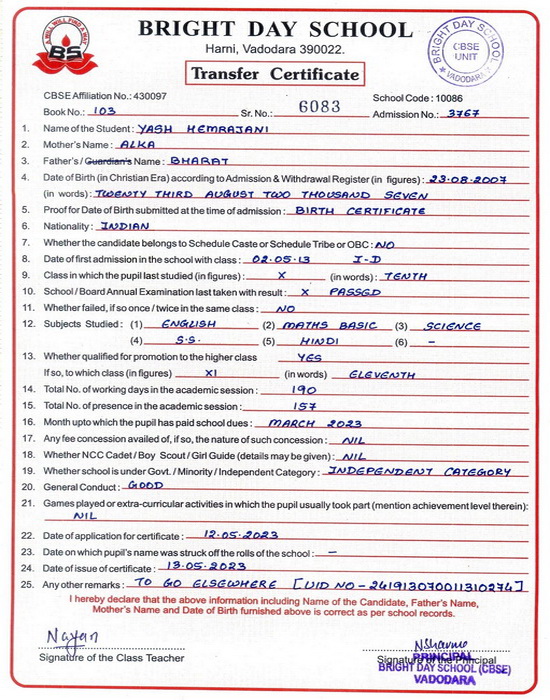 A WILL WILL FIND A WAY
BS
BRIGHT DAY SCHOOL
Harni, Vadodara 390022.
Transfer Certificate
BRIGHT DAY SCHOOL
CBSE
UNIT
VADODARA
CBSE Affiliation No.: 430097 School Code : 10086
Book No.: 103 Sr. No.: 6083 Admission No.: 3767
1. Name of the Student : YASH HEMRAJANI
2. Mother's Name : ALKA
3. Father's / Guardian's Name : BHARAT
4. Date of Birth (in Christian Era) according to Admission & Withdrawal Register (in figures) : 23.08.2007
(in words) : TWENTY THIRD AUGUST TWO THOUSAND SEVEN
5. Proof for Date of Birth submitted at the time of admission : BIRTH CERTIFICATE
6. Nationality : INDIAN
7. Whether the candidate belongs to Schedule Caste or Schedule Tribe or OBC : NO
8. Date of first admission in the school with class : 02.05.13 I-D
9. Class in which the pupil last studied (in figures) : X (in words) : TENTH
10. School / Board Annual Examination last taken with result : X PASSED
11. Whether failed, if so once / twice in the same class : NO
12. Subjects Studied : (1) ENGLISH (2) MATHS BASIC (3) SCIENCE
(4) S.S. (5) HINDI (6) –
13. Whether qualified for promotion to the higher class YES
If so, to which class (in figures) XI (in words) ELEVENTH
14. Total No. of working days in the academic session : 190
15. Total No. of presence in the academic session : 157
16. Month upto which the pupil has paid school dues : MARCH 2023
17. Any fee concession availed of, if so, the nature of such concession : NIL
18. Whether NCC Cadet / Boy Scout / Girl Guide (details may be given) : NIL
19. Whether school is under Govt. / Minority / Independent Category : INDEPENDENT CATEGORY
20. General Conduct : GOOD
21. Games played or extra-curricular activities in which the pupil usually took part (mention achievement level therein):
NIL
22. Date of application for certificate : 12.05.2023
23. Date on which pupil's name was struck off the rolls of the school : –
24. Date of issue of certificate : 13.05.2023
25. Any other remarks : TO GO ELSEWHERE [UID NO - 241913070011310274]
I hereby declare that the above information including Name of the Candidate, Father's Name,
Mother's Name and Date of Birth furnished above is correct as per school records.
Nayan
Signature of the Class Teacher Signature of the Principal
PRINCIPAL
BRIGHT DAY SCHOOL (CBSE)
VADODARA